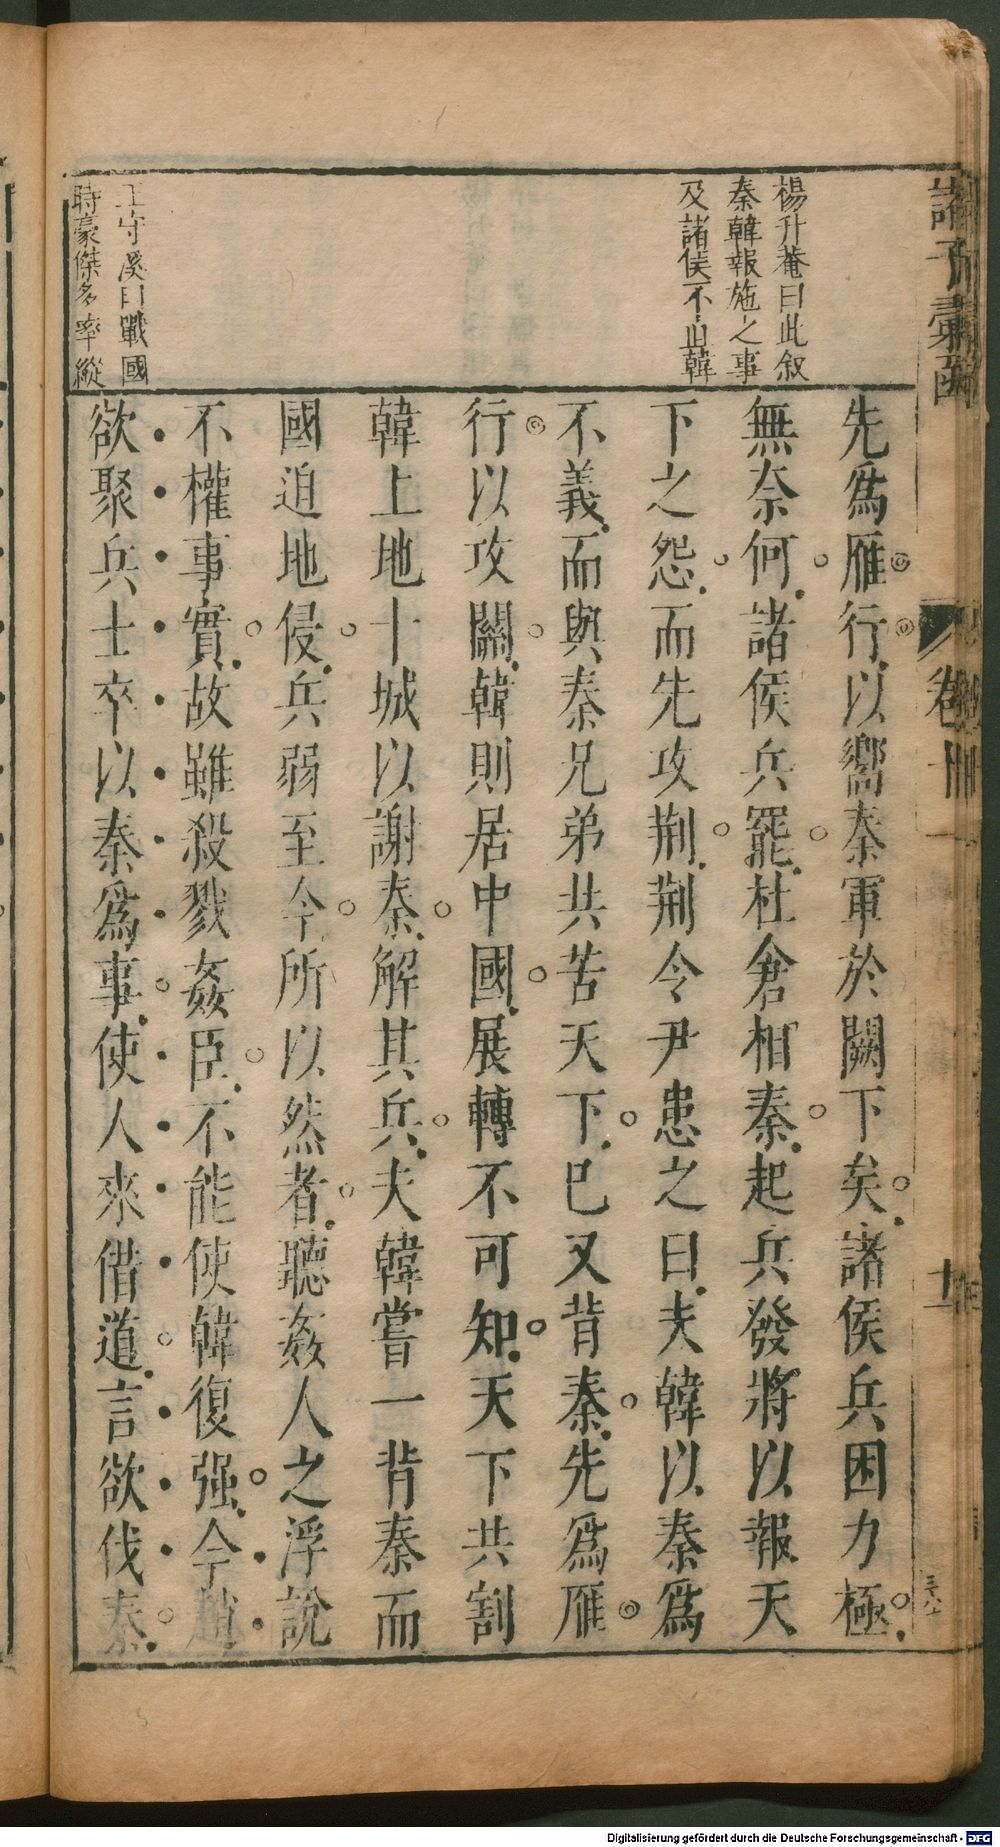 楊升菴曰此叙
秦韓報施之事
及諸侯不直韓
王守溪曰戰國
時豪傑多率縱
先爲雁行以嚮秦軍於闕下矣諸侯兵困力極
無奈何諸侯兵罷杜倉相秦起兵發將以報天
下之怨而先攻荆荆令尹患之曰夫韓以秦爲
不義而與秦兄弟共苦天下已又背秦先爲雁
行以攻關韓則居中國展轉不可知天下共割
韓上地十城以謝秦解其兵夫韓嘗一背秦而
國迫地侵兵弱至今所以然者聽姦人之浮說
不權事實故雖殺戮姦臣不能使韓復强今趙
欲聚兵士卒以秦爲事使人來借道言欲伐秦
諸子彙函
卷十
Digitalisierung gefördert durch die Deutsche Forschungsgemeinschaft - DFG